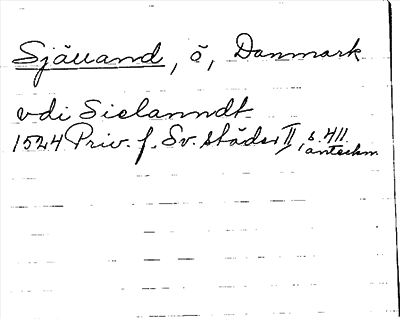 Själland, ö, Danmark
vdi Sielanndt
1524 Priv. f. Sv. städer II, s. 411
anteckn.